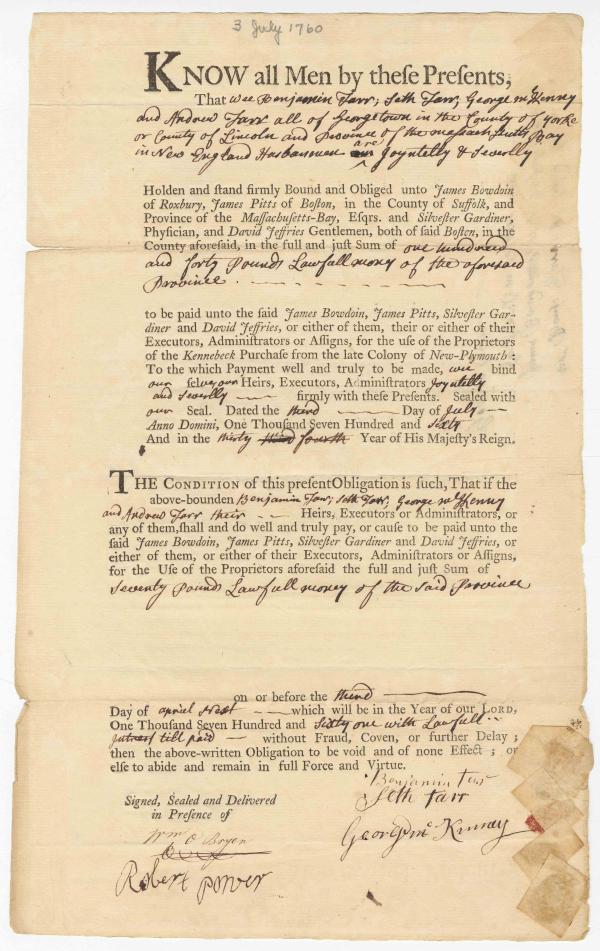 3 July 1760
KNOW all Men by these Presents,
That wee Benjamin Tarr, Seth Tarr, George McKenny
and Andrew Tarr all of Georgetown in the County of Yorke
or County of Lincoln and Province of the Massachusetts Bay
in New England Husbanmen are Joyntelly & Severlly
Holden and stand firmly Bound and Obliged unto James Bowdoin
of Roxbury, James Pitts of Boston, in the County of Suffolk, and
Province of the Massachusetts-Bay, Esqrs. and Silvester Gardiner,
Physician, and David Jeffries Gentlemen, both of said Boston, in the
County aforesaid, in the full and just Sum of one hundred
and forty Pounds Lawfull money of the aforesaed
Province
to be paid unto the said James Bowdoin, James Pitts, Silvester Gar-
diner and David Jeffries, or either of them, their or either of their
Executors, Administrators or Assigns, for the use of the Proprietors
of the Kennebeck Purchase from the late Colony of New-Plymouth:
To the which Payment well and truly to be made, wee bind
our selves our Heirs, Executors, Administrators Joyntelly
and Severlly firmly with these Presents. Sealed with
our Seal. Dated the third Day of July
Anno Domini, One Thousand Seven Hundred and Sixty
And in the thirty third fourth Year of His Majesty's Reign.
THE CONDITION of this present Obligation is such, That if the
above-bounden Benjamin Tarr, Seth Tarr, George McKenny
and Andrew Tarr their Heirs, Executors or Administrators, or
any of them, shall and do well and truly pay, or cause to be paid unto the
said James Bowdoin, James Pitts, Silvester Gardiner and David Jeffries, or
either of them, or either of their Executors, Administrators or Assigns,
for the Use of the Proprietors aforesaid the full and just Sum of
Seventy Pounds Lawfull money of the said Province
on or before the third
Day of april Next which will be in the Year of our LORD,
One Thousand Seven Hundred and Sixty one with Lawfull
till paid without Fraud, Coven, or further Delay;
then the above-written Obligation to be void and of none Effect; or
else to abide and remain in full Force and Virtue.
Benjamin Tarr
Signed, Sealed and Delivered
Seth Tarr
in Presence of
George Mc Kinney
Wm O Bryen
Robert Power